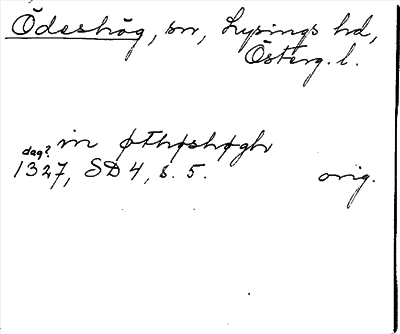 Ödeshög, sn, Lysings hd,
Österg. l.
in øthøshøgh
dag?
1327, SD 4, s. 5. orig.